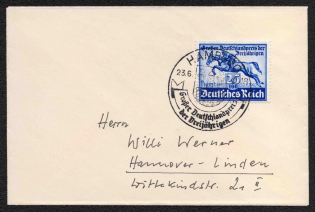 Großer Deutschlandpreis der
Dreijährigen
Deutsches Reich
HAMBURG
23.6.
Großer Deutschlandpreis
der Dreijährigen
Herrn
Willi Werner
Hannover-Linden
Wittekindstr. 21 II